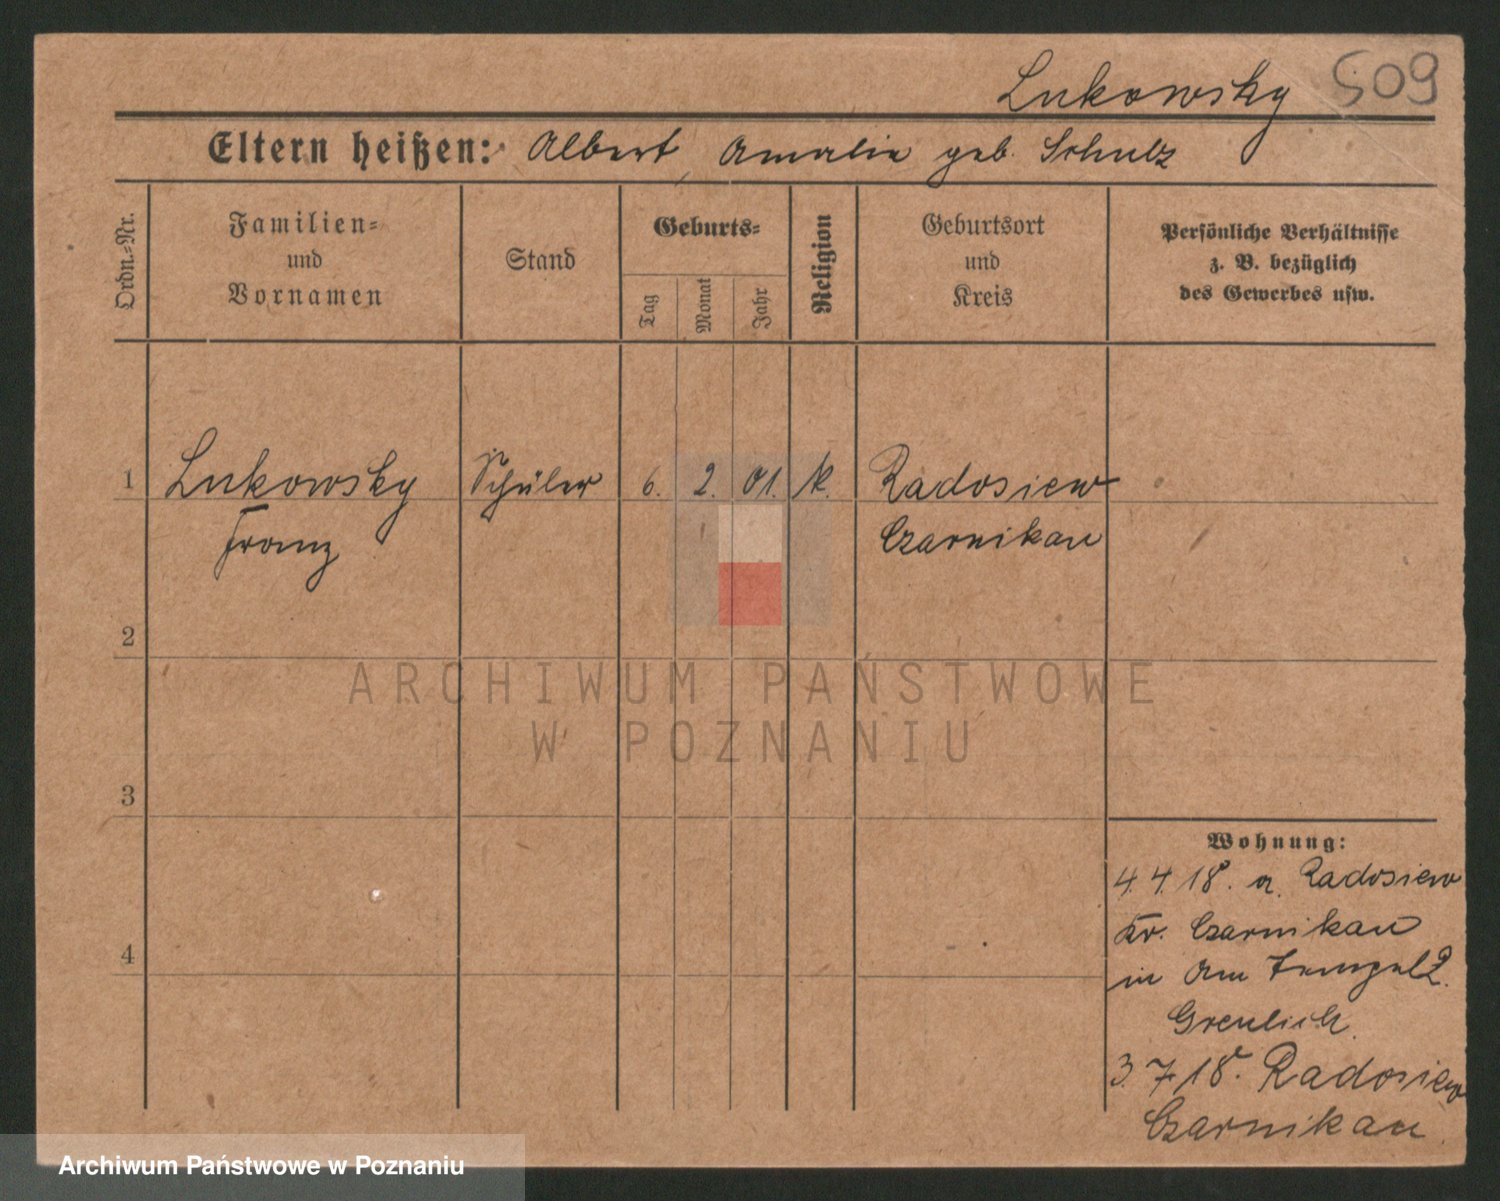 Lukowsky 509
Eltern heißen: Albert, Amalie geb. Schulz
Ordn.-Nr.
Familien-
und
Vornamen
Stand
Geburts-
Tag
Monat
Jahr
Religion
Geburtsort
und
Kreis
Persönliche Verhältnisse
z. B. bezüglich
des Gewerbes usw.
1 Lukowsky Schüler 6. 2. 01. k. Radosiew
Franz Czarnikau
2
3
4
Wohnung:
4.4.18. a. Radosiew
Kr. Czarnikau
in Am Tempel 2.
3.7.18. Radosiew
Czarnikau
ARCHIWUM PAŃSTWOWE
W POZNANIU
Archiwum Państwowe w Poznaniu